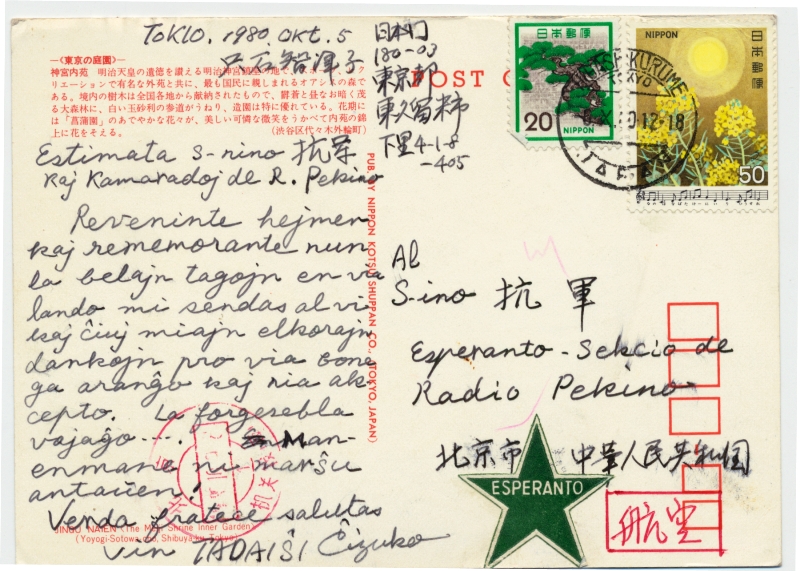 TOKIO. 1980. OKT. 5
只石智津子
日本国
180-03
東京都
東久留米市
下里4-1-8
-405
〈東京の庭園〉
神宮内苑 明治天皇の遺徳を讃える明治神宮
リエーションで有名な外苑と共に、最も国民に親しまれるオアシスの森で
ある。境内の樹木は全国各地から献納されたもので、鬱蒼と昼なお暗く茂
る大森林に、白い玉砂利の参道がうねり、造園は特に優れている。花期に
は「菖蒲園」のあでやかな花々が、美しい可憐な微笑をうかべて内苑の錦
上に花をそえる。
(渋谷区代々木外輪町)
POST C
日本郵便
20
NIPPON
NIPPON
日本郵便
50
HIGASHI-KURUME
TOKYO
12-18
Estimata S-nino 抗军
kaj Kamaradoj de R. Pekino
Reveninte hejmen
kaj rememorante nun
la belajn tagojn en via
lando mi sendas al vi
kaj ĉiuj miajn elkorajn
dankojn pro via bone
ga aranĝo kaj via ak
cepto. La forgesebla
vojaĝo.... Man-
enmane ni marŝu
antaŭen!
Verda fratece salutas
vin TADAIŜI Ĉizuko
JINGU NAIEN (The Meiji Shrine Inner Garden)
(Yoyogi-Sotowa-cho, Shibuya-ku, Tokyo)
PUB. BY NIPPON KOTSU SHUPPAN CO., (TOKYO, JAPAN)
Al
S-ino 抗軍
Esperanto-Sekcio de
Radio Pekino
北京市 中華人民共和国
ESPERANTO
航空